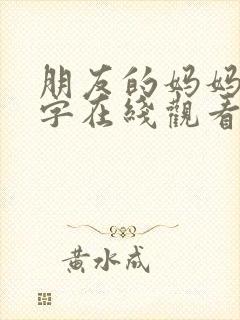 朋友的妈妈
字在綫觀看
黄水成